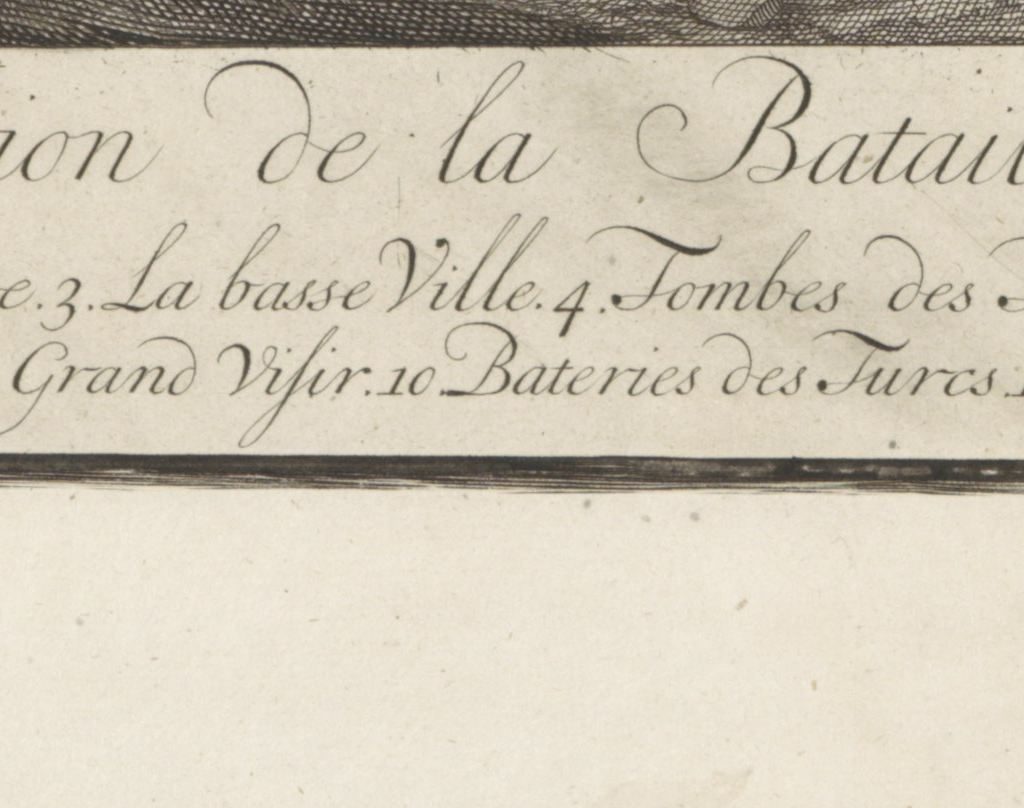 ion de la Batail
e. 3. La basse Ville. 4. Tombes des
Grand Viſir. 10. Bateries des Turcs.